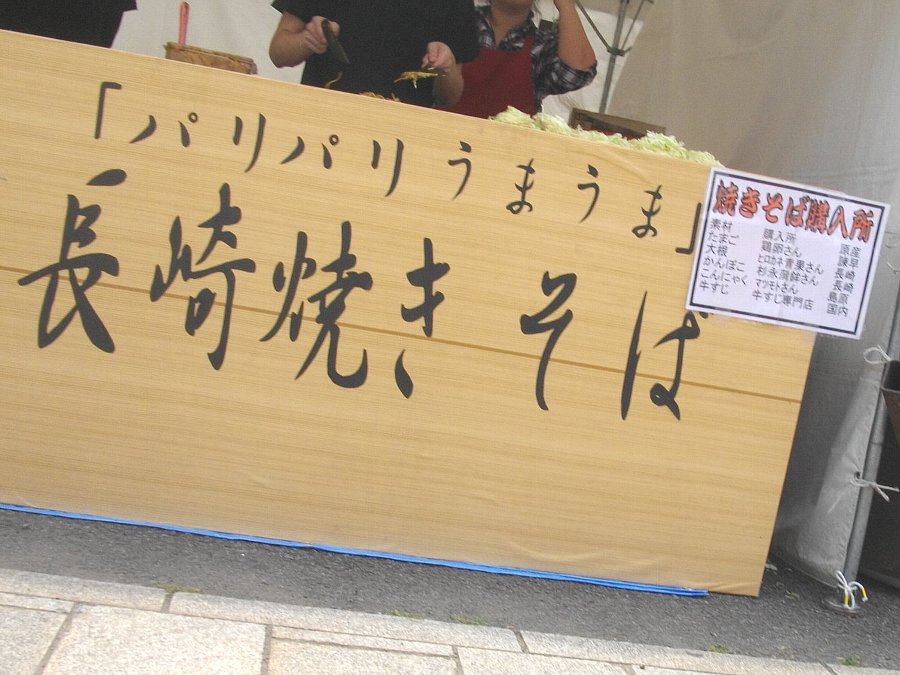 「パリパリうまうま」
長崎焼きそば
焼きそば購入所
素材 購入所 原産
たまご 鶏卵さん 諫早
大根 ヒロカネ青果さん 長崎
かんぼこ 杉永蒲鉾さん 長崎
こんにゃく マツモトさん 島原
牛すじ 牛すじ専門店 国内